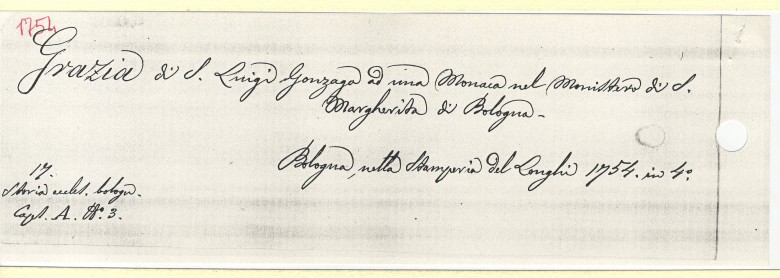 1754
Grazia di S. Luigi Gonzaga ad una Monaca nel Monistero di S.
Margherita di Bologna -
Bologna, nella Stamperia del Longhi 1754. in 4º
17.
Storia eccles. bologn.
Caps. A. Nº 3.